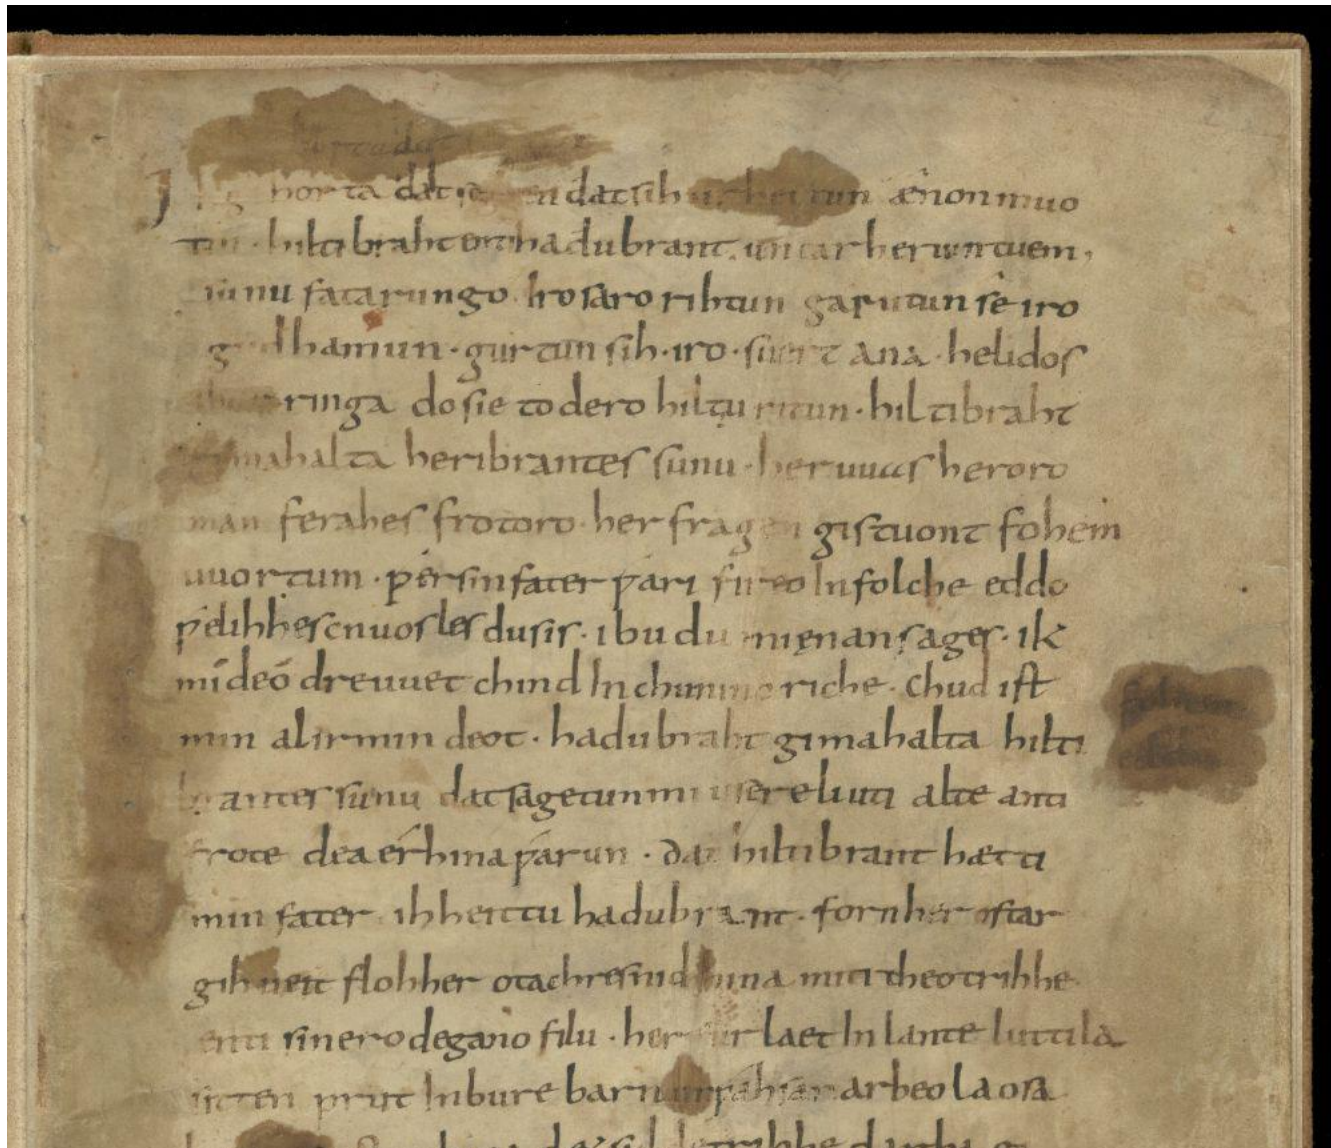 Ik gihorta dat seggen dat sih urhettun ænon muo
tin · hiltibraht enti hadubrant · untar heriun tuem,
sunufatarungo · iro saro rihtun garutun se iro
gudhamun · gurtun sih · iro · suert ana · helidos
ringa do sie to dero hiltiu ritun · hiltibraht
gimahalta heribrantes sunu · her uuas heroro
man ferahes frotoro · her fragen gistuont fohem
uuortum · ƿer sin fater ƿari fireo In folche eddo
ƿelihhes cnuosles du sis · ibu du mi ęnan sages · ik
mi deo dre uuet chind In chunincriche · Chud ist
min al irmin deot · hadubraht gimahalta hilti
brantes sunu dat sagetun mi usere liuti alte anti
frote dea érhina ƿarun · dat hiltibrant hætti
min fater · ih heittu hadubrant · forn her ostar
gihueit floh her otachres nid hina miti theotrihhe
enti sinero degano filu · her fur laet In lante luttila
sitten prut In bure barn unƿahsan arbeo laosa